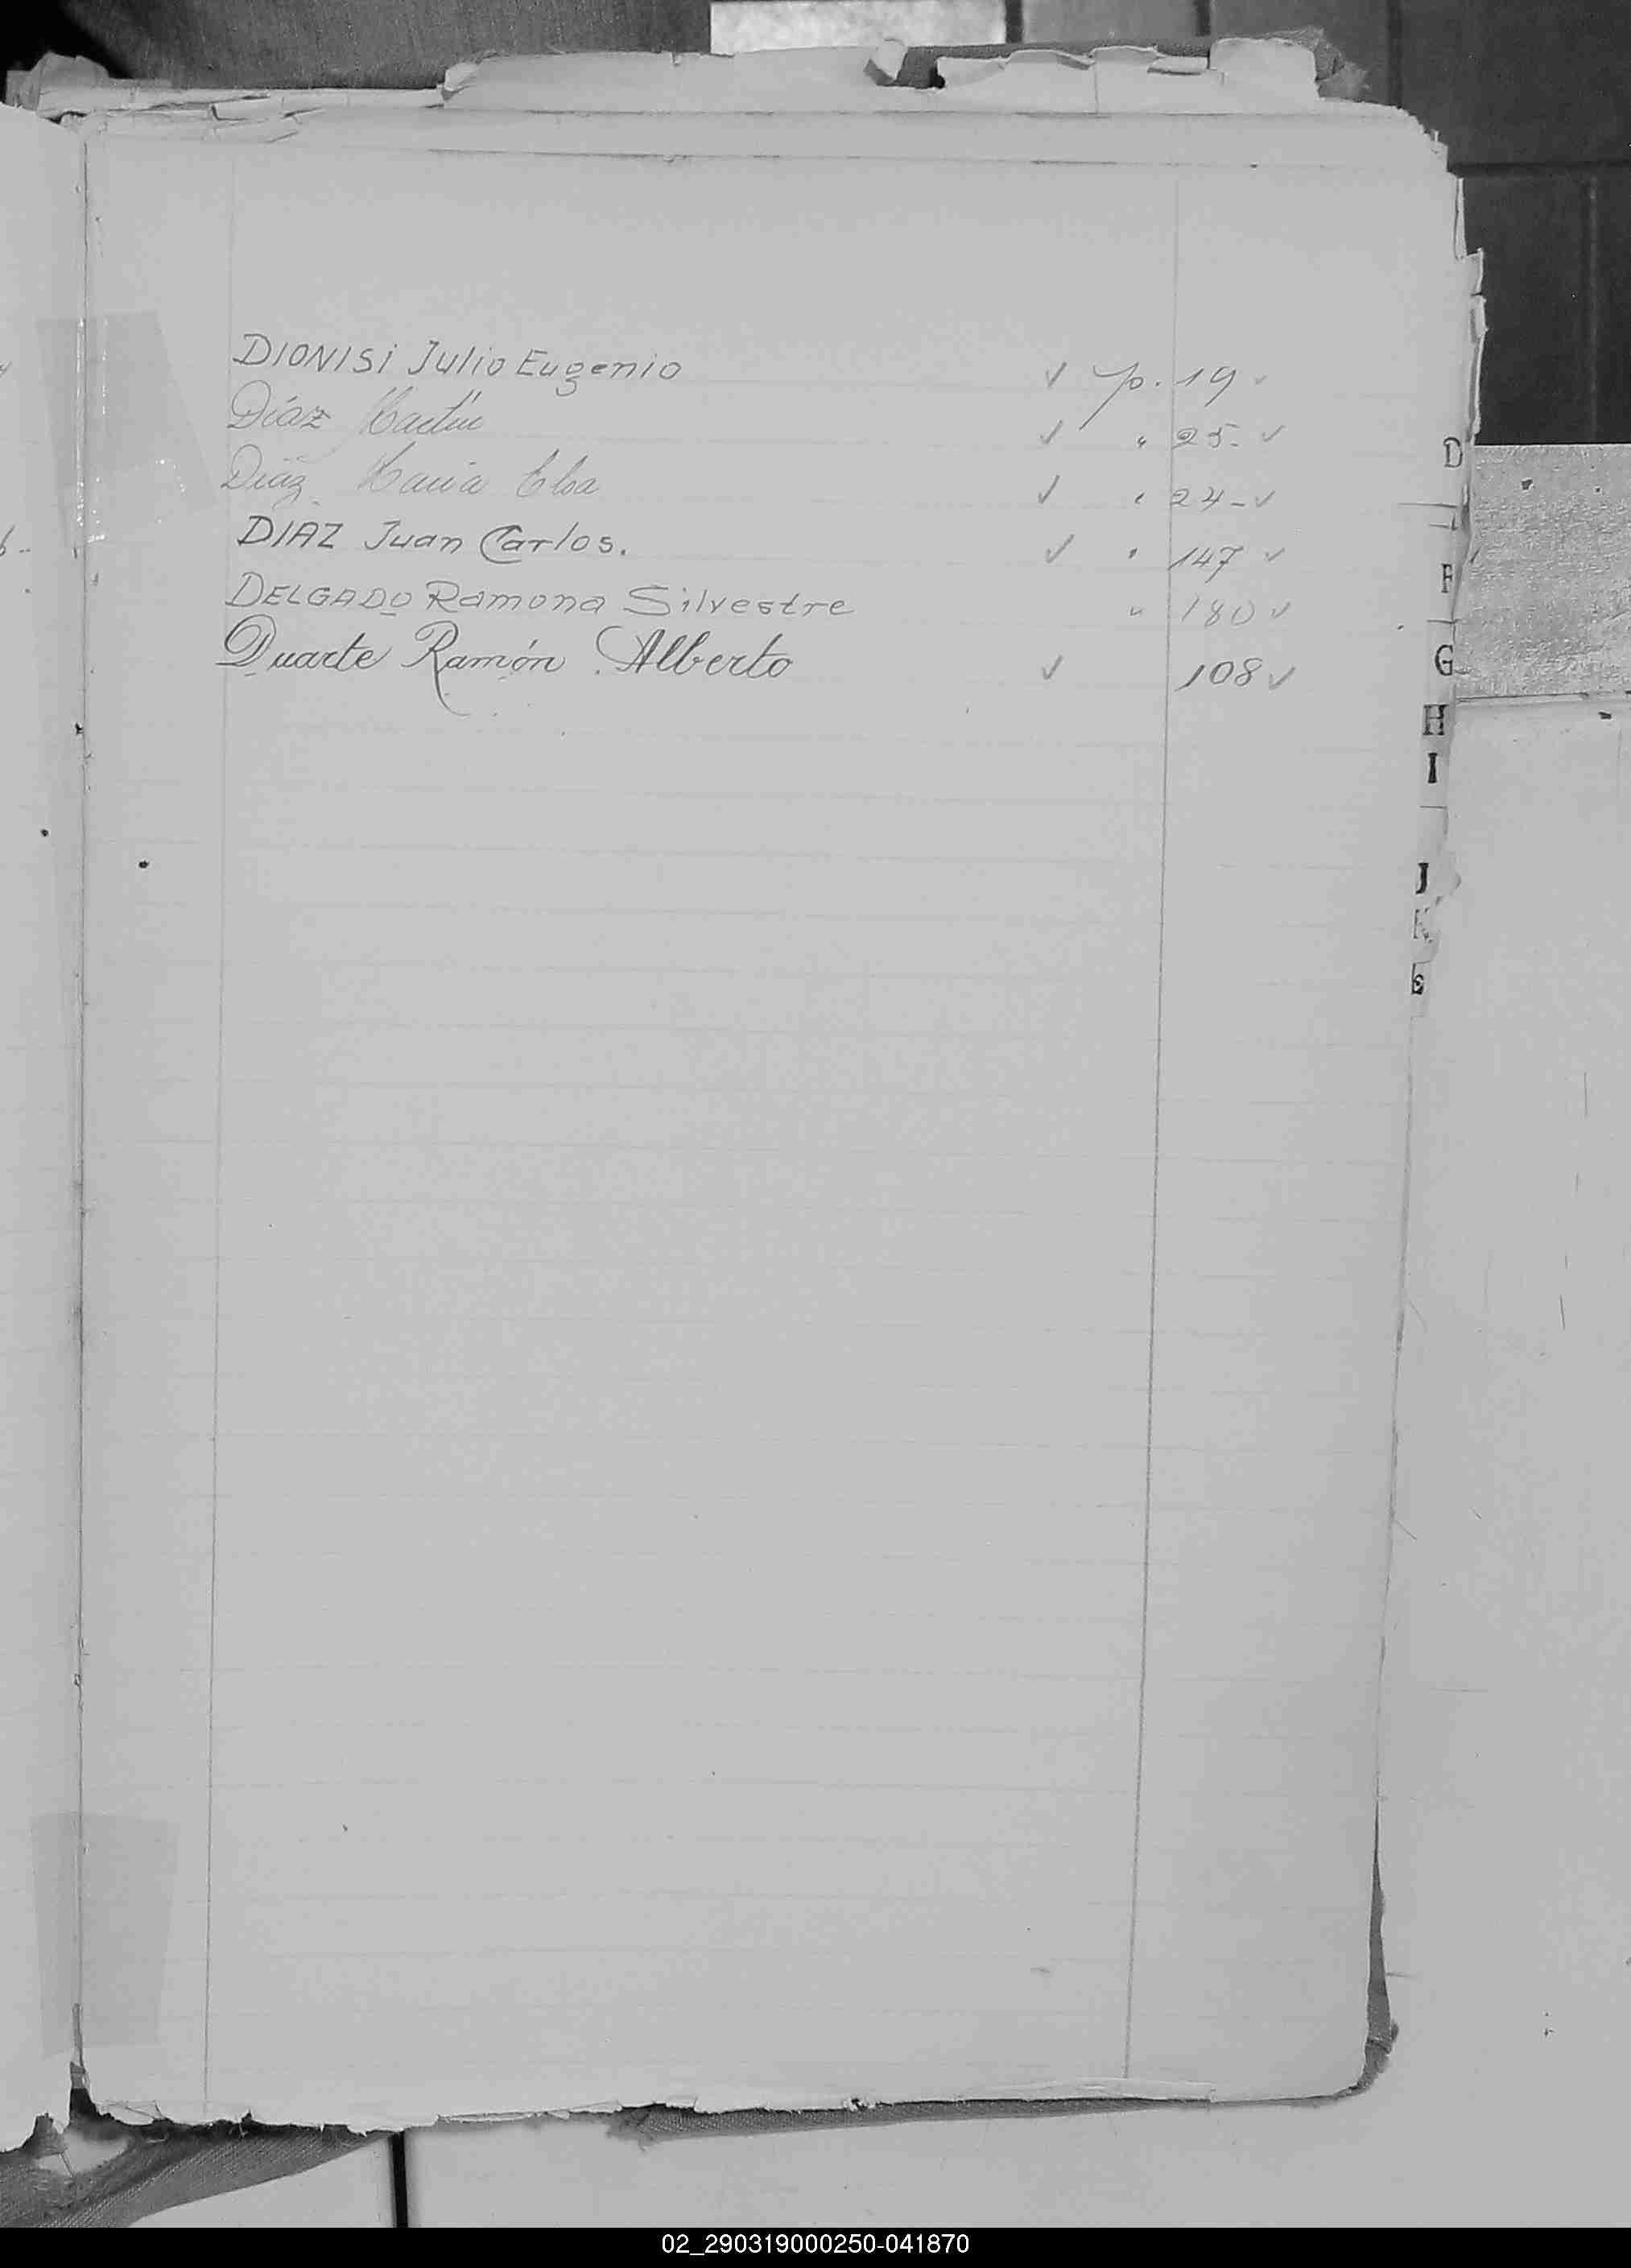 DIONISI Julio Eugenio ✓ p. 19 ✓
Díaz Martín ✓ " 25- ✓
Díaz María Elsa ✓ " 24- ✓
DIAZ Juan Carlos. ✓ " 147 ✓
DELGADO Ramona Silvestre " 180 ✓
Duarte Ramón Alberto ✓ 108 ✓
D
F
G
H
I
J
K
02_290319000250-041870